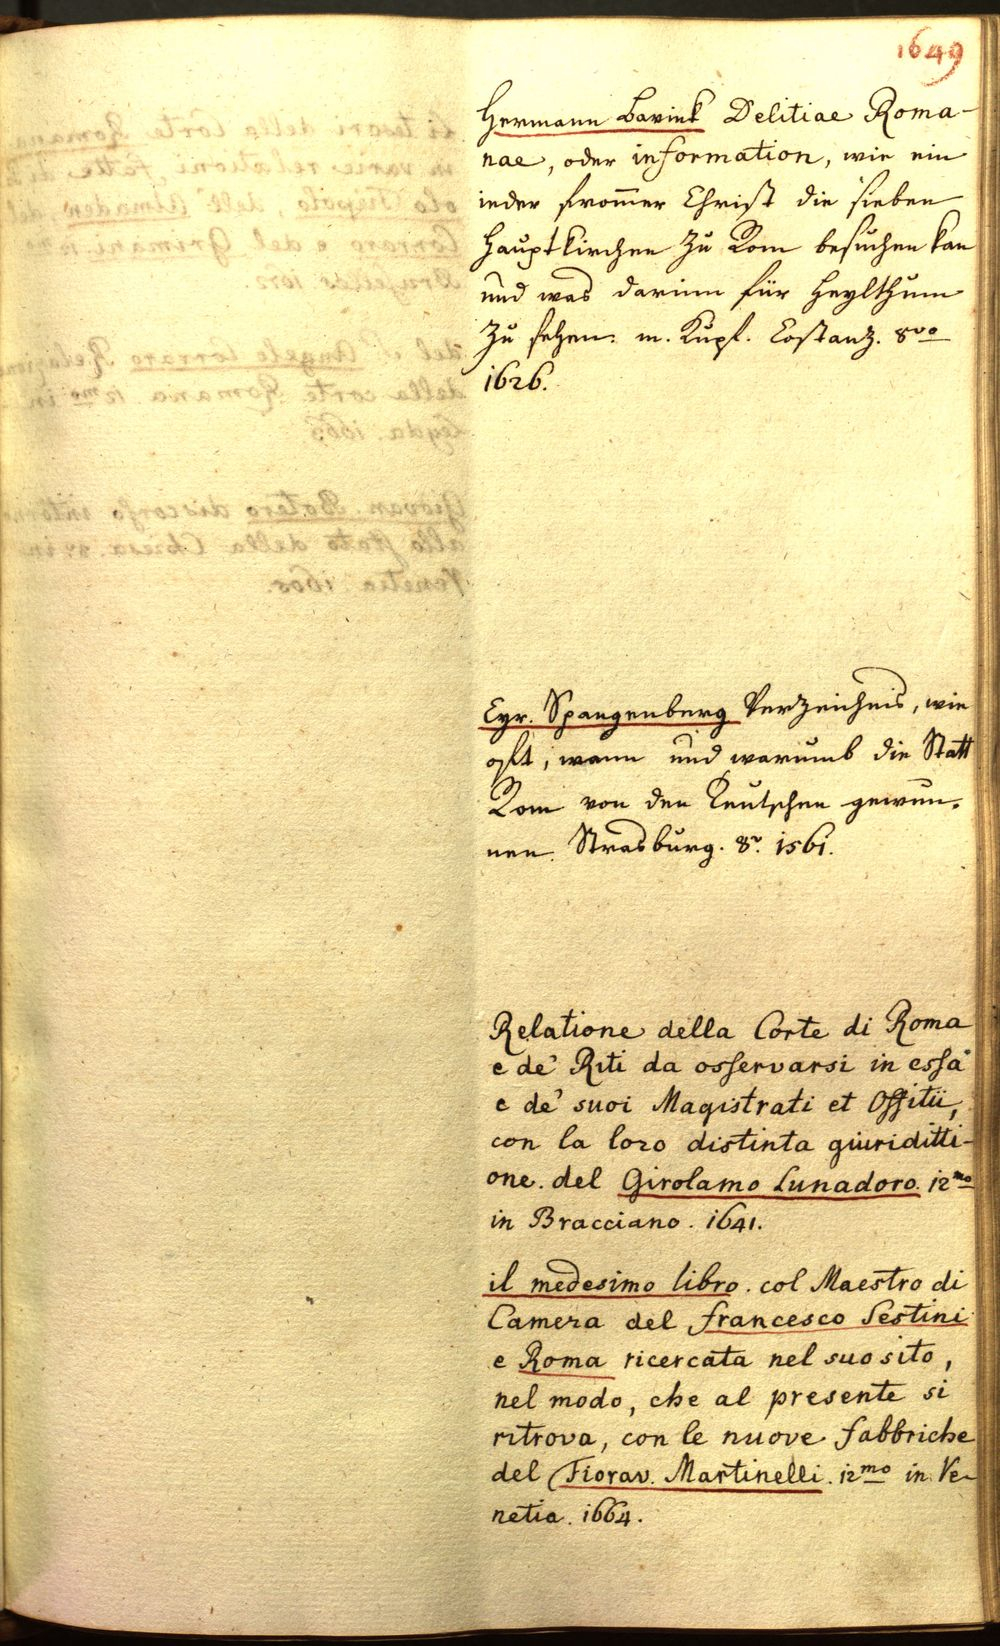 1649
Hermann Bavink Delitiae Roma-
nae, oder information, wie ein
ieder from̅er Christ die sieben
Hauptkirchen zu Rom besuchen kan
und was darinn für Heylthum
zu sehen. m. Kupf. Costanz. 8vo
1626.
Cyr. Spangenberg Verzeichnis, wie
offt, wann und warumb die Statt
Rom von den Teutschen gewun-
nen. Strasburg. 8v. 1561.
Relatione della Corte di Roma
e de' Riti da osservarsi in essa
e de' suoi Magistrati et Offitii,
con la loro distinta giuriditti-
one. del Girolamo Lunadoro. 12mo
in Bracciano. 1641.
il medesimo libro. col Maestro di
Camera del francesco Sestini
e Roma ricercata nel suo sito,
nel modo, che al presente si
ritrova, con le nuove fabbriche
del Fiorav. Martinelli. 12mo in Ve-
netia. 1664.